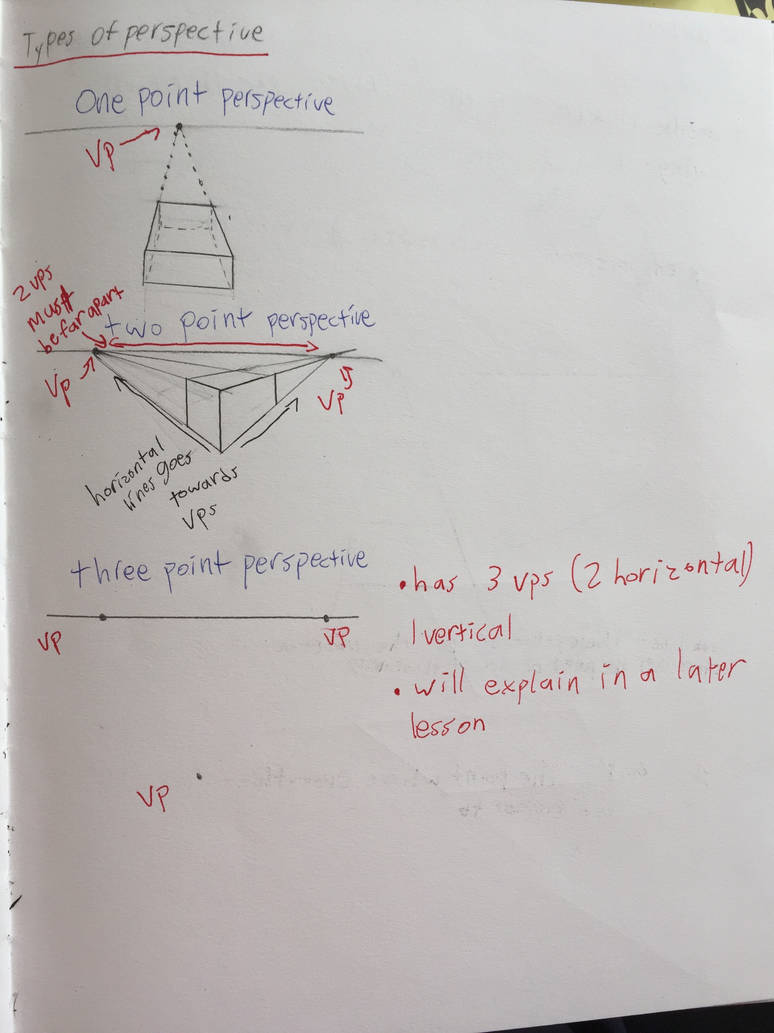 Types of perspective
One point perspective
VP
2 vps
must
be far apart
two point perspective
VP
VP
horizontal
lines goes
towards
VPs
three point perspective
VP
VP
• has 3 vps (2 horizontal)
1 vertical
• will explain in a later
lesson
VP